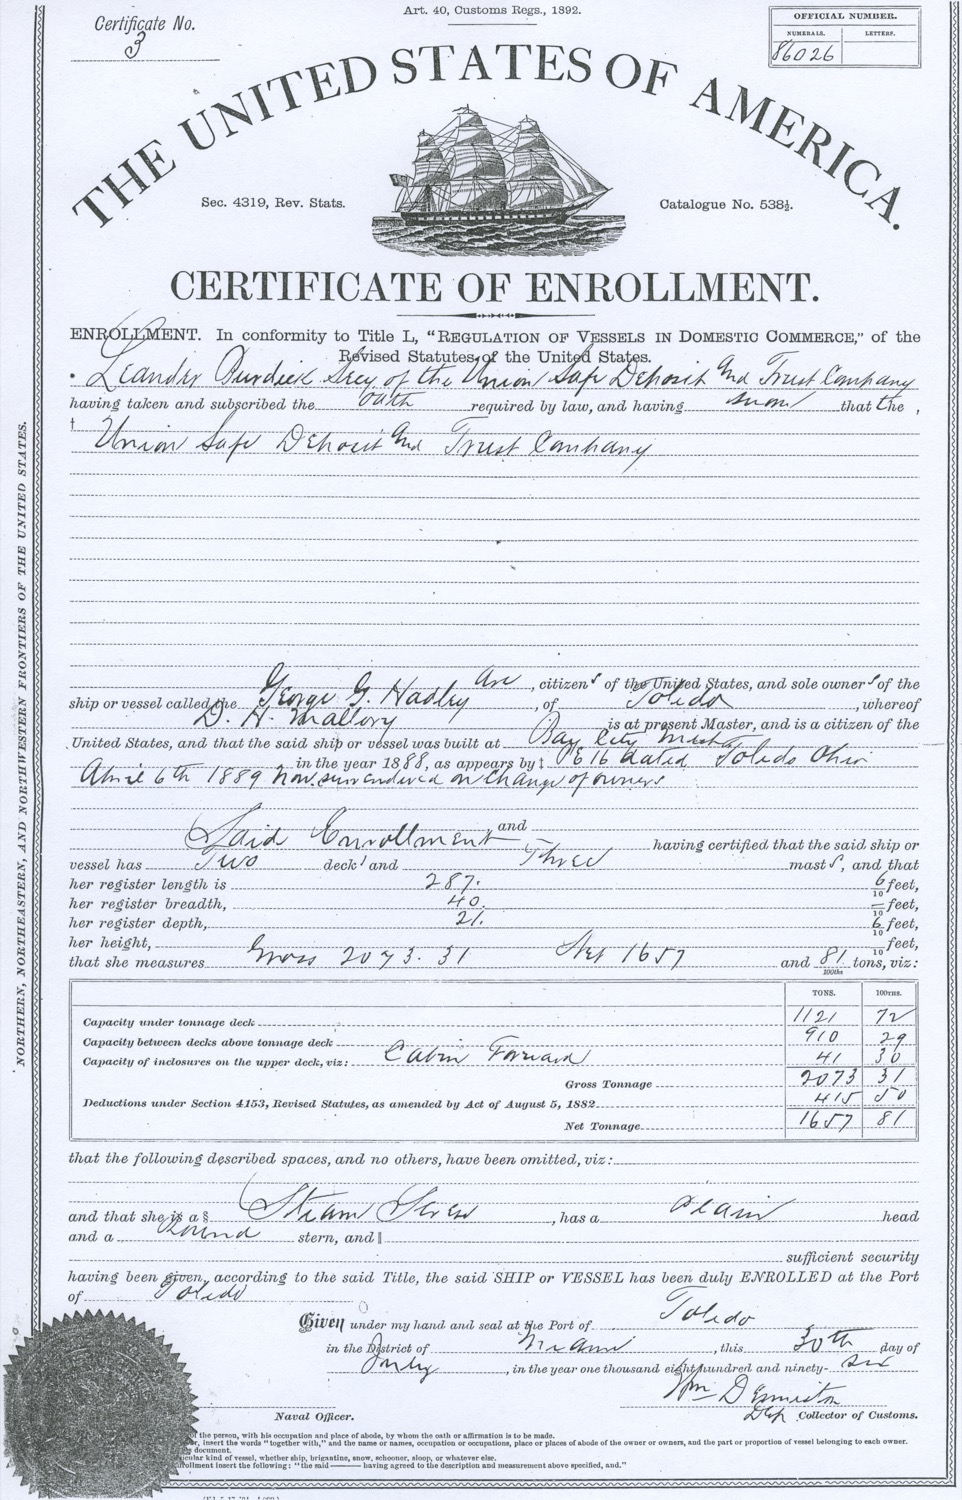 Art. 40, Customs Regs., 1892.
Certificate No.
3
OFFICIAL NUMBER.
NUMERALS. LETTERS.
86026
THE UNITED STATES OF AMERICA.
Sec. 4319, Rev. Stats.
Catalogue No. 538½.
CERTIFICATE OF ENROLLMENT.
ENROLLMENT. In conformity to Title L, "REGULATION OF VESSELS IN DOMESTIC COMMERCE," of the
Revised Statutes of the United States.
Leander Burdick Secy of the Union Safe Deposit and Trust Company
having taken and subscribed the oath required by law, and having sworn that the
† Union Safe Deposit and Trust Company
are, citizens of the United States, and sole owners of the
ship or vessel called the George G. Hadley, of Toledo, whereof
D. H. Mallory is at present Master, and is a citizen of the
United States, and that the said ship or vessel was built at Bay City Mich
in the year 1888, as appears by‡ P E 16 dated Toledo Ohio
April 6th 1889 now surrendered on Change of owners
Said Enrollment and having certified that the said ship or
vessel has Two decks and Three masts, and that
her register length is 287. 6/10 feet,
her register breadth, 40. –/10 feet,
her register depth, 21. 6/10 feet,
her height, /10 feet,
that she measures Gross 2073.31 Net 1657 and 81/100ths tons, viz:
TONS. 100THS.
Capacity under tonnage deck 1121 72
Capacity between decks above tonnage deck 910 29
Capacity of inclosures on the upper deck, viz: Cabin Forward 41 30
Gross Tonnage 2073 31
Deductions under Section 4153, Revised Statutes, as amended by Act of August 5, 1882 415 50
Net Tonnage 1657 81
that the following described spaces, and no others, have been omitted, viz:
and that she is a § Steam Screw, has a Plain head
and a Round stern, and ‖
sufficient security
having been given, according to the said Title, the said SHIP or VESSEL has been duly ENROLLED at the Port
of Toledo
Given under my hand and seal at the Port of Toledo
in the District of Miami, this 30th day of
July, in the year one thousand eight hundred and ninety-six
Wm
Dep Collector of Customs.
Naval Officer.
of the person, with his occupation and place of abode, by whom the oath or affirmation is to be made.
insert the words "together with," and the name or names, occupation or occupations, place or places of abode of the owner or owners, and the part or proportion of vessel belonging to each owner.
document.
kind of vessel, whether ship, brigantine, snow, schooner, sloop, or whatever else.
insert the following: "the said ——— having agreed to the description and measurement above specified, and."
NORTHERN, NORTHEASTERN, AND NORTHWESTERN FRONTIERS OF THE UNITED STATES.